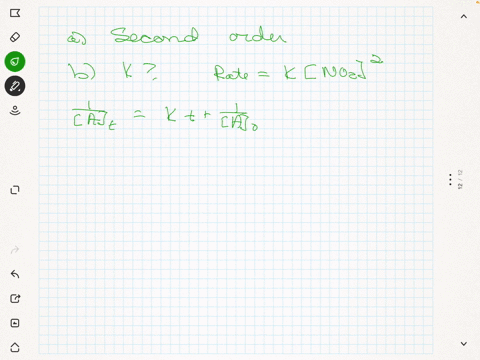 a) Second order
b) K? Rate = K [NO2]^2
1/[A]t = K t + 1/[A]0
12 / 12